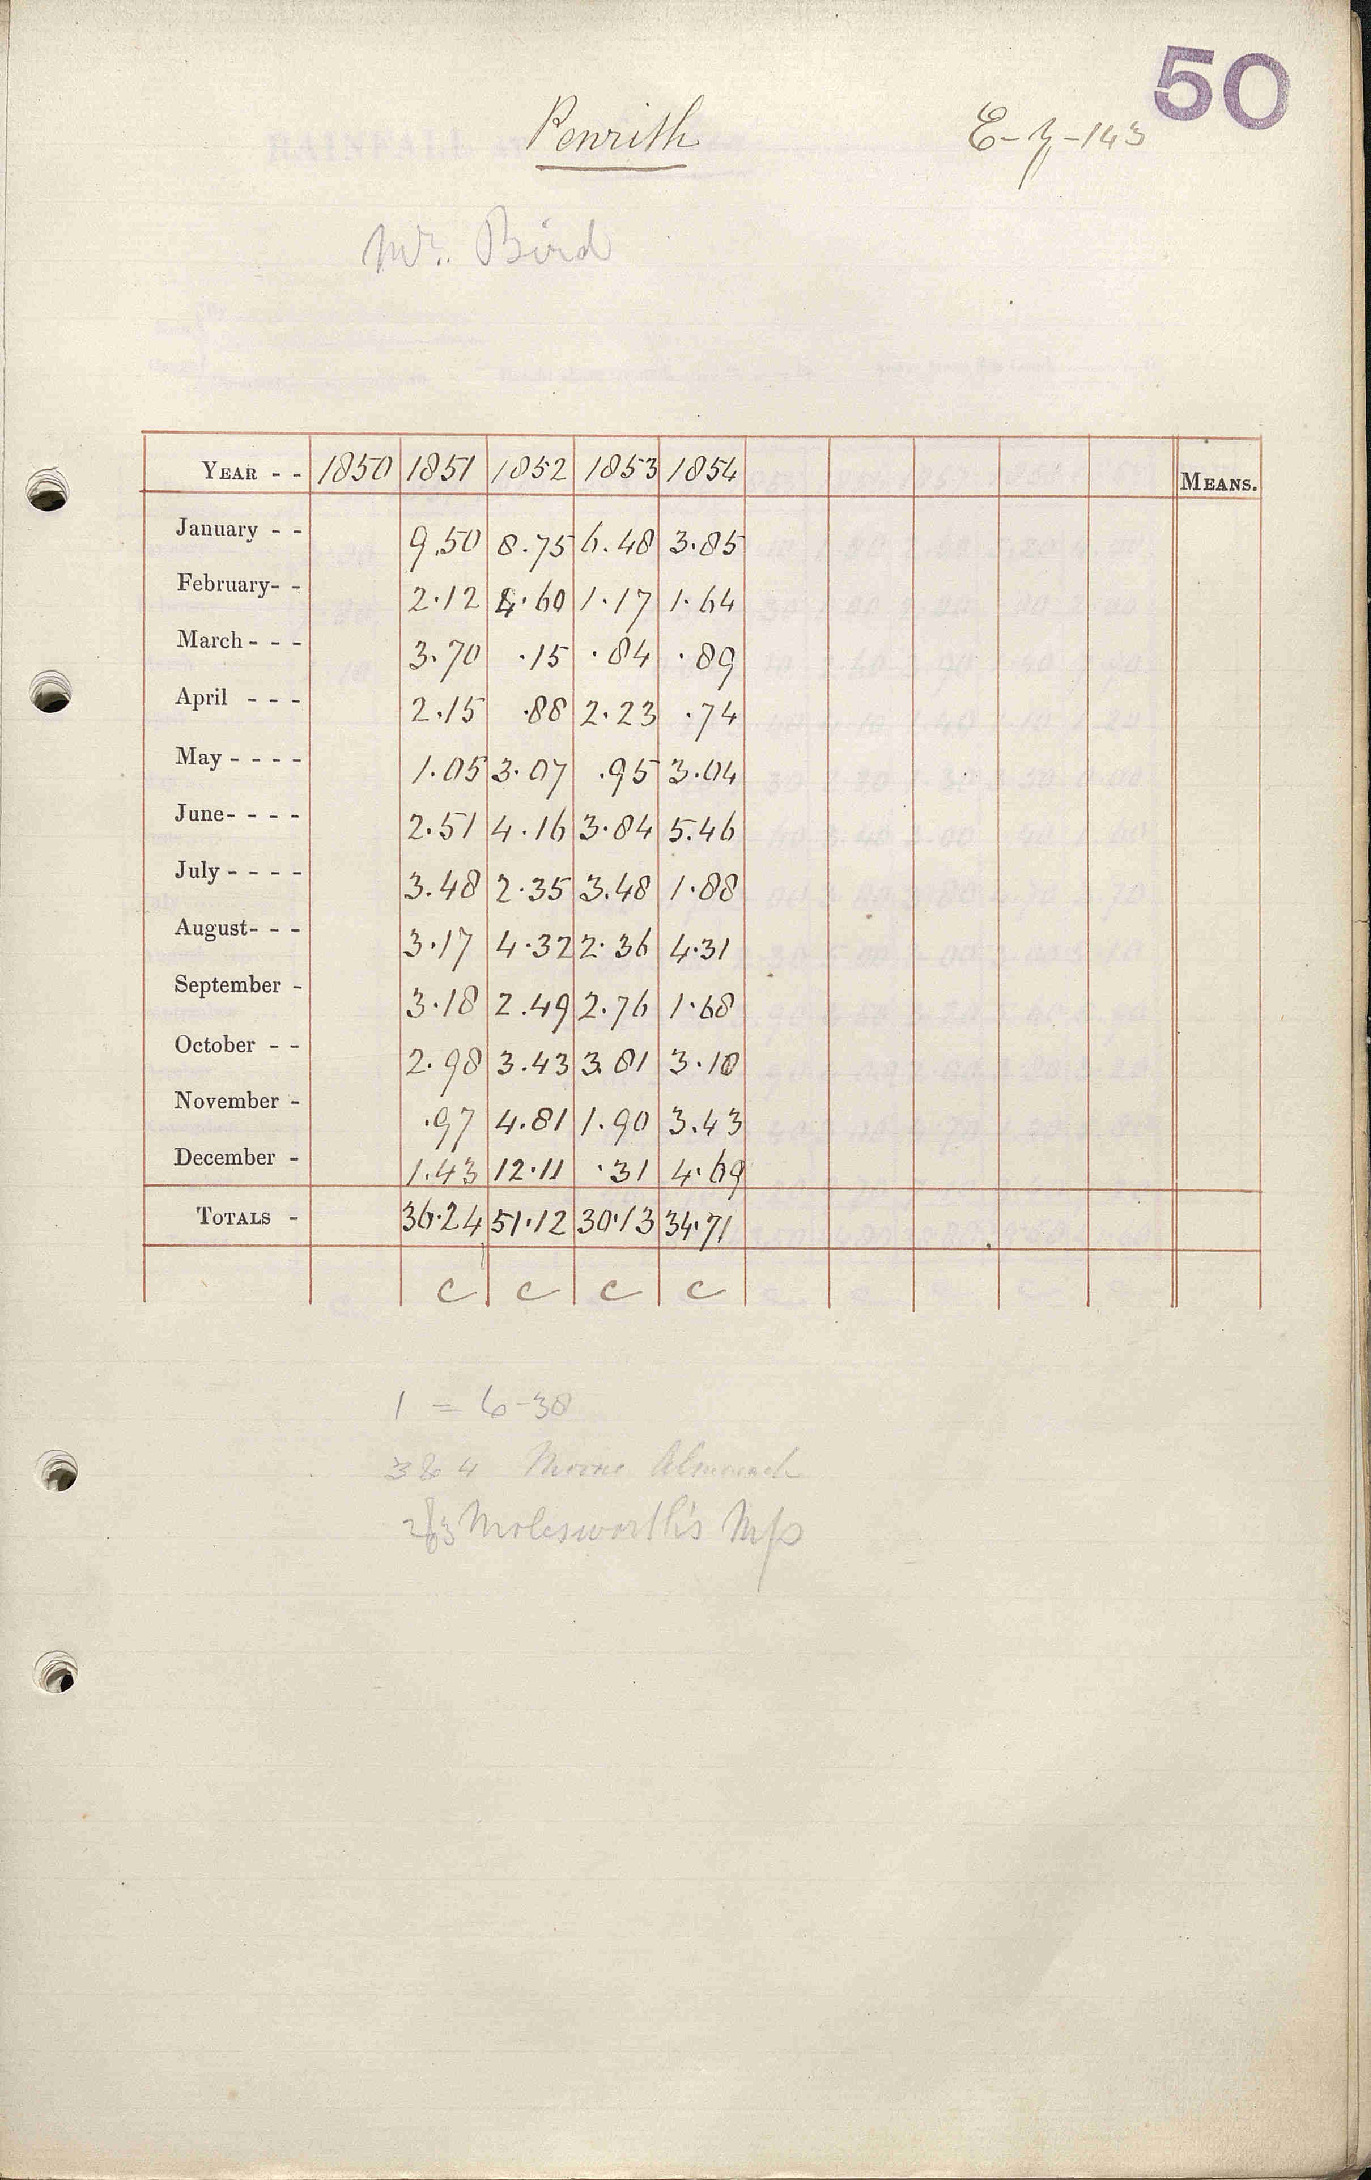 50
Penrith
Mr. Bird
YEAR - - 1850 1851 1852 1853 1854 MEANS.
January - - 9.50 8.75 6.48 3.85
February- - 2.12 4.60 1.17 1.64
March - - - 3.70 .15 .84 .89
April - - - 2.15 .88 2.23 .74
May - - - - 1.05 3.07 .95 3.04
June- - - - 2.51 4.16 3.84 5.46
July - - - - 3.48 2.35 3.48 1.88
August- - - 3.17 4.32 2.36 4.31
September - 3.18 2.49 2.76 1.68
October - - 2.98 3.43 3.81 3.10
November - .97 4.81 1.90 3.43
December - 1.43 12.11 .31 4.69
TOTALS - 36.24 51.12 30.13 34.71
C C C C
1 = 6-38
3 & 4 Almanack
2&3 Molesworth's